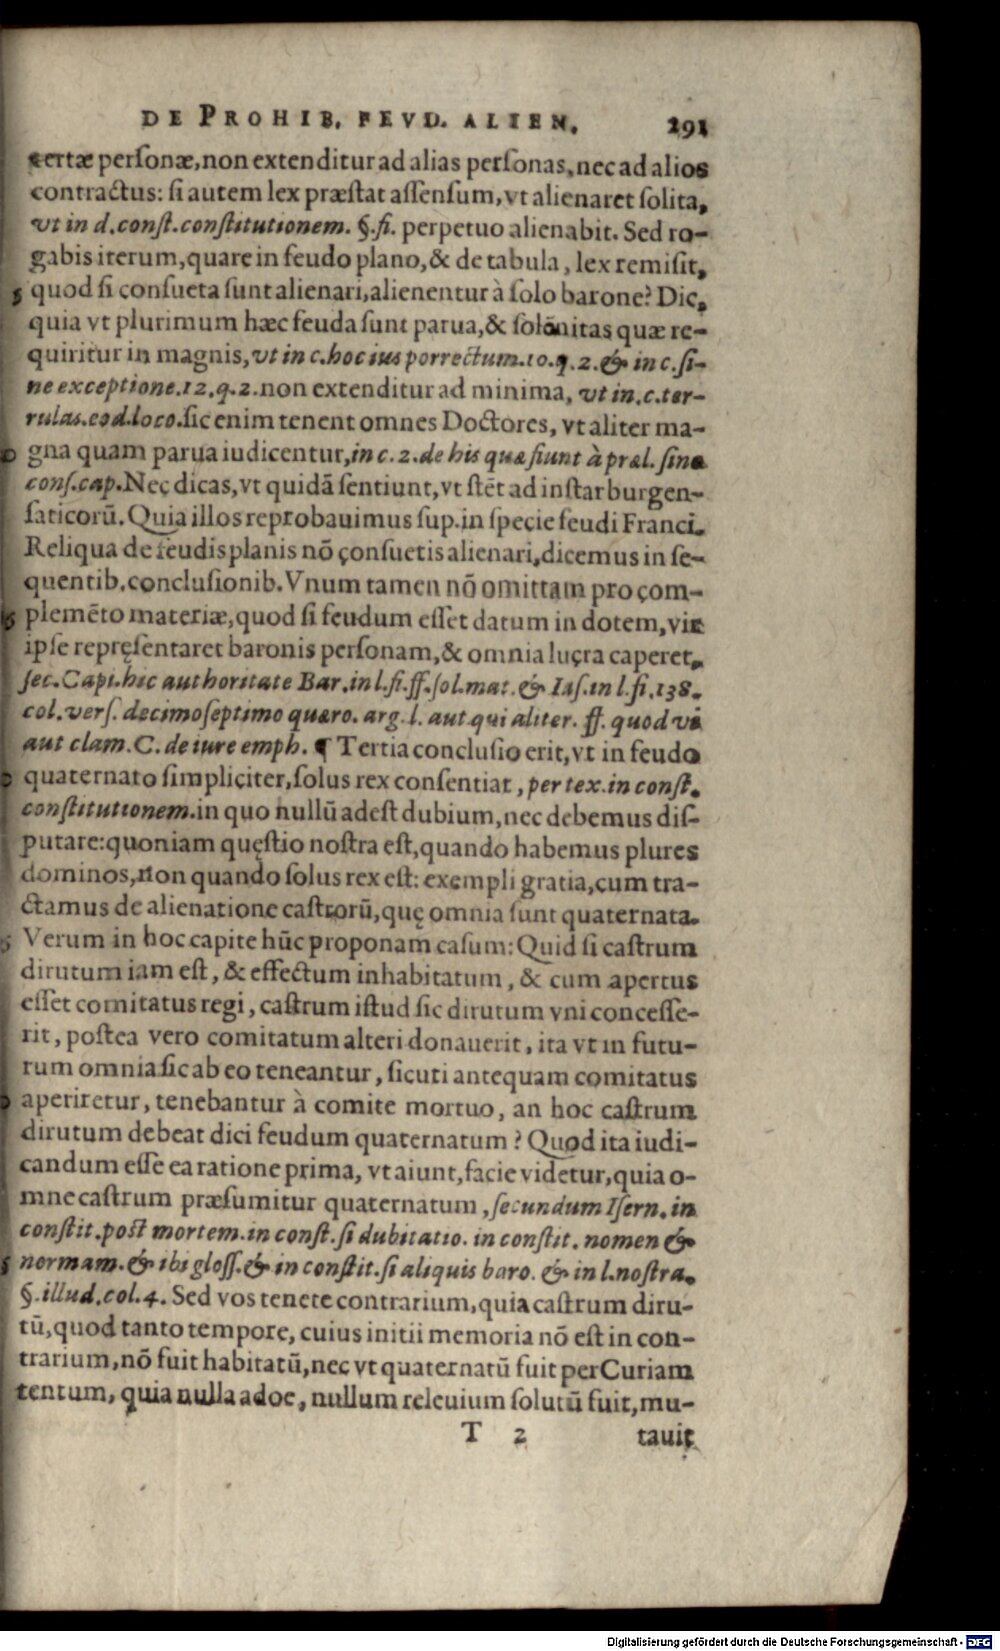 DE PROHIB. FEVD. ALIEN. 291
certæ personæ, non extenditur ad alias personas, nec ad alios
contractus: si autem lex præstat assensum, vt alienaret solita,
vt in d. const. constitutionem. §. fi. perpetuo alienabit. Sed ro-
gabis iterum, quare in feudo plano, & de tabula, lex remisit,
5 quod si consueta sunt alienari, alienentur à solo barone? Dic,
quia vt plurimum hæc feuda sunt parua, & solēnitas quæ re-
quiritur in magnis, vt in c. hoc ius porrectum. 10. q. 2. & in c. si-
ne exceptione. 12. q. 2. non extenditur ad minima, vt in. c. ter-
rulas. eod. loco. sic enim tenent omnes Doctores, vt aliter ma-
gna quam parua iudicentur, in c. 2. de his quæ fiunt à præl. sine
cons. cap. Nec dicas, vt quidā sentiunt, vt stēt ad instar burgen-
saticorū. Quia illos reprobauimus sup. in specie feudi Franci.
Reliqua de feudis planis nō consuetis alienari, dicemus in se-
quentib. conclusionib. Vnum tamen nō omittam pro com-
15 plemēto materiæ, quod si feudum esset datum in dotem, vir
ipse repręsentaret baronis personam, & omnia lucra caperet,
sec. Capi. hic authoritate Bar. in l. fi. ff. sol. mat. & Ias. in l. fi. 138.
col. vers. decimoseptimo quæro. arg. l. aut qui aliter. ff. quod vi
aut clam. C. de iure emph. ¶ Tertia conclusio erit, vt in feudo
quaternato simpliciter, solus rex consentiat, per tex. in const.
constitutionem. in quo nullū adest dubium, nec debemus dis-
putare: quoniam quęstio nostra est, quando habemus plures
dominos, non quando solus rex est: exempli gratia, cum tra-
ctamus de alienatione castrorū, quę omnia sunt quaternata.
5 Verum in hoc capite hūc proponam casum: Quid si castrum
dirutum iam est, & effectum inhabitatum, & cum apertus
esset comitatus regi, castrum istud sic dirutum vni concesse-
rit, postea vero comitatum alteri donauerit, ita vt in futu-
rum omnia sic ab eo teneantur, sicuti antequam comitatus
aperiretur, tenebantur à comite mortuo, an hoc castrum
dirutum debeat dici feudum quaternatum? Quod ita iudi-
candum esse ea ratione prima, vt aiunt, facie videtur, quia o-
mne castrum præsumitur quaternatum, secundum Isern. in
constit. post mortem. in const. si dubitatio. in constit. nomen &
5 normam. & ibi gloss. & in constit. si aliquis baro. & in l. nostra.
§. illud. col. 4. Sed vos tenete contrarium, quia castrum diru-
tū, quod tanto tempore, cuius initii memoria nō est in con-
trarium, nō fuit habitatū, nec vt quaternatū fuit per Curiam
tentum, quia nulla adoe, nullum releuium solutū fuit, mu-
T 2 tauit
Digitalisierung gefördert durch die Deutsche Forschungsgemeinschaft - DFG